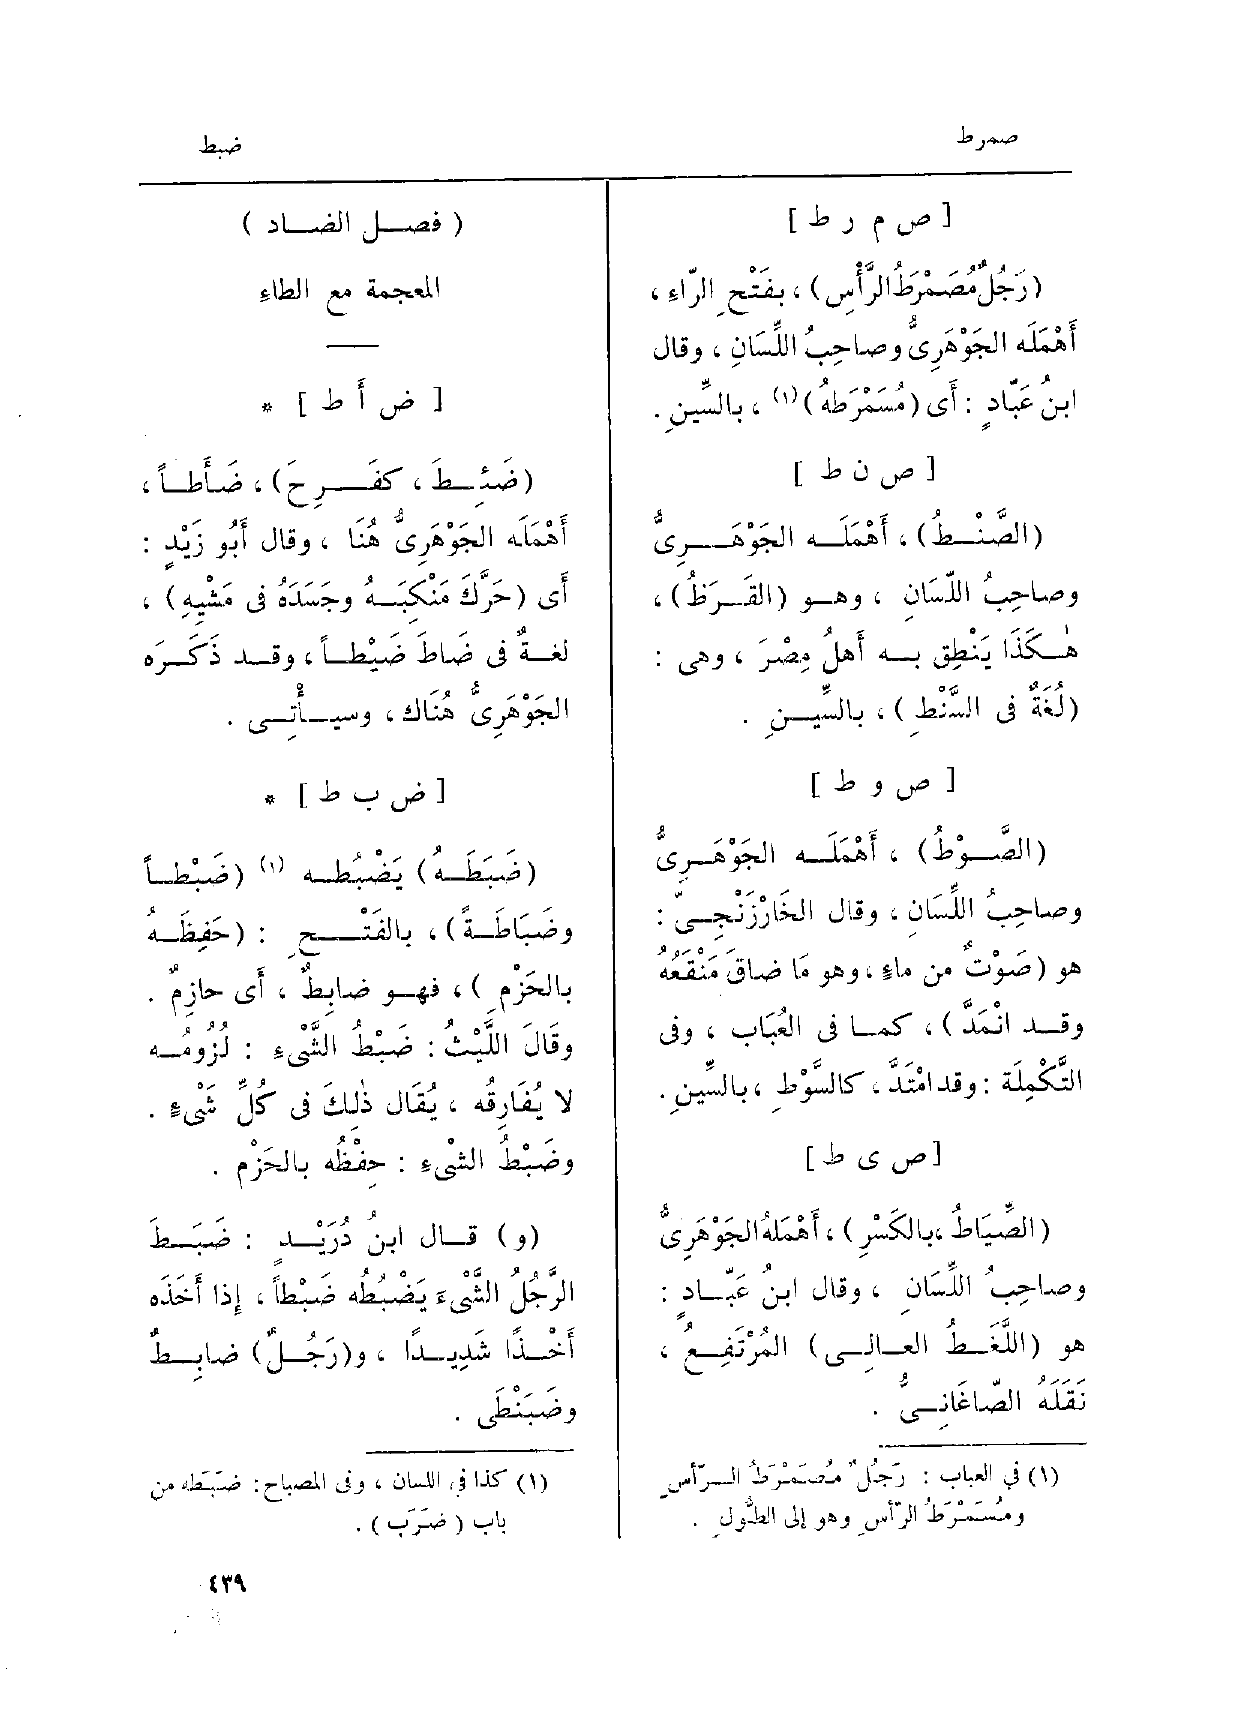 صمرط
ضبط
[ ص م ر ط ]
(رَجُلٌ مُصَمْرَطُ الرَّأْسِ) ، بفَتْحِ الرّاءِ ،
أَهْمَلَه الجَوْهَرِىُّ وصاحِبُ اللِّسَانِ ، وقال
ابنُ عَبّادٍ : أَى (مُسَمْرَطهُ)(١) ، بالسِّينِ .
[ ص ن ط ]
(الصَّنْطُ) ، أَهْمَلَه الجَوْهَرِىُّ
وصاحِبُ اللِّسَانِ ، وهو (القَرَظُ) ،
هٰكَذَا يَنْطِق به أَهلُ مِصْرَ ، وهى :
(لُغَةٌ فى السَّنْطِ ) ، بالسِّينِ .
[ ص و ط ]
(الصَّوْطُ) ، أَهْمَلَه الجَوْهَرِىُّ
وصاحِبُ اللِّسَان ، وقال الخَارْزَنْجِىّ :
هو (صَوْتٌ من ماءٍ ، وهو مَا ضاقَ مَنْقَعُهُ
وقد انْمَدَّ ) ، كما فى العُبَاب ، وفى
التَّكْمِلَة : وقد امْتَدَّ ، كالسَّوْطِ ، بالسِّينِ .
[ص ى ط ]
(الصِّيَاطُ ، بالكَسْرِ ) ، أَهْمَلهُ الجَوْهَرِىُّ
وصاحِبُ اللِّسَانِ ، وقال ابنُ عَبّادٍ :
هو (اللَّغَطُ العالِى) المُرْتَفِعُ ،
نَقَلَهُ الصّاغَانِىُّ .
(١) في العباب : رَجُلٌ مُصَمْرَطُ الرّأسِ
ومُسَمْرَطُ الرّأسِ وهو إلى الطُّول .
( فصل الضاد )
المعجمة مع الطاء
[ ض أ ط ] *
(ضَئِطَ ، كفَرِحَ) ، ضَأَطاً ،
أَهْمَلَه الجَوْهَرِىُّ هُنَا ، وقال أَبُو زَيْدٍ :
أَى (حَرَّكَ مَنْكِبَهُ وجَسَدَهُ فى مَشْيِهِ) ،
لغةٌ فى ضَاطَ ضَيْطاً ، وقد ذَكَرَه
الجَوْهَرِىُّ هُنَاك ، وسيأْتِى .
[ض ب ط ] *
(ضَبَطَهُ) يَضْبُطه (١) (ضَبْطاً
وضَبَاطَةً) ، بالفَتْحِ : (حَفِظَهُ
بالحَزْمِ ) ، فهو ضابِطٌ ، أَى حازِمٌ .
وقَالَ اللَّيْثُ : ضَبْطُ الشَّىءِ : لُزُومُه
لا يُفَارِقه ، يُقَال ذٰلِكَ فى كلِّ شْىءٍ .
وضَبْطُ الشْىءِ : حِفْظُه بالحَزْم .
(و) قال ابنُ دُرَيْدٍ : ضَبَطَ
الرَّجُلُ الشَّىْءَ يَضْبُطُه ضَبْطاً ، إذا أَخَذَه
أَخْذًا شَدِيدًا ، و(رَجُلٌ) ضابِطٌ
وضَبَنْطَى .
(١) كذا في اللسان ، وفى المصباح : ضَبَطه من
باب ( ضَرَب ) .
٤٣٩